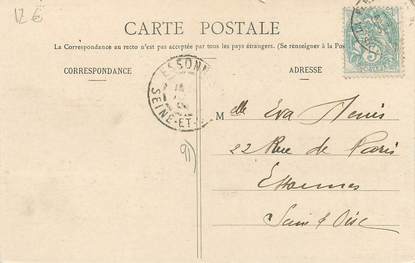 12 €
CARTE POSTALE
La Correspondance au recto n'est pas acceptée par tous les pays étrangers. (Se renseigner à la Pos
CORRESPONDANCE
ADRESSE
ESSONN
SEINE-ET-
Melle Eva
22 Rue de Paris
Essonnes
Seine & Oise
91)